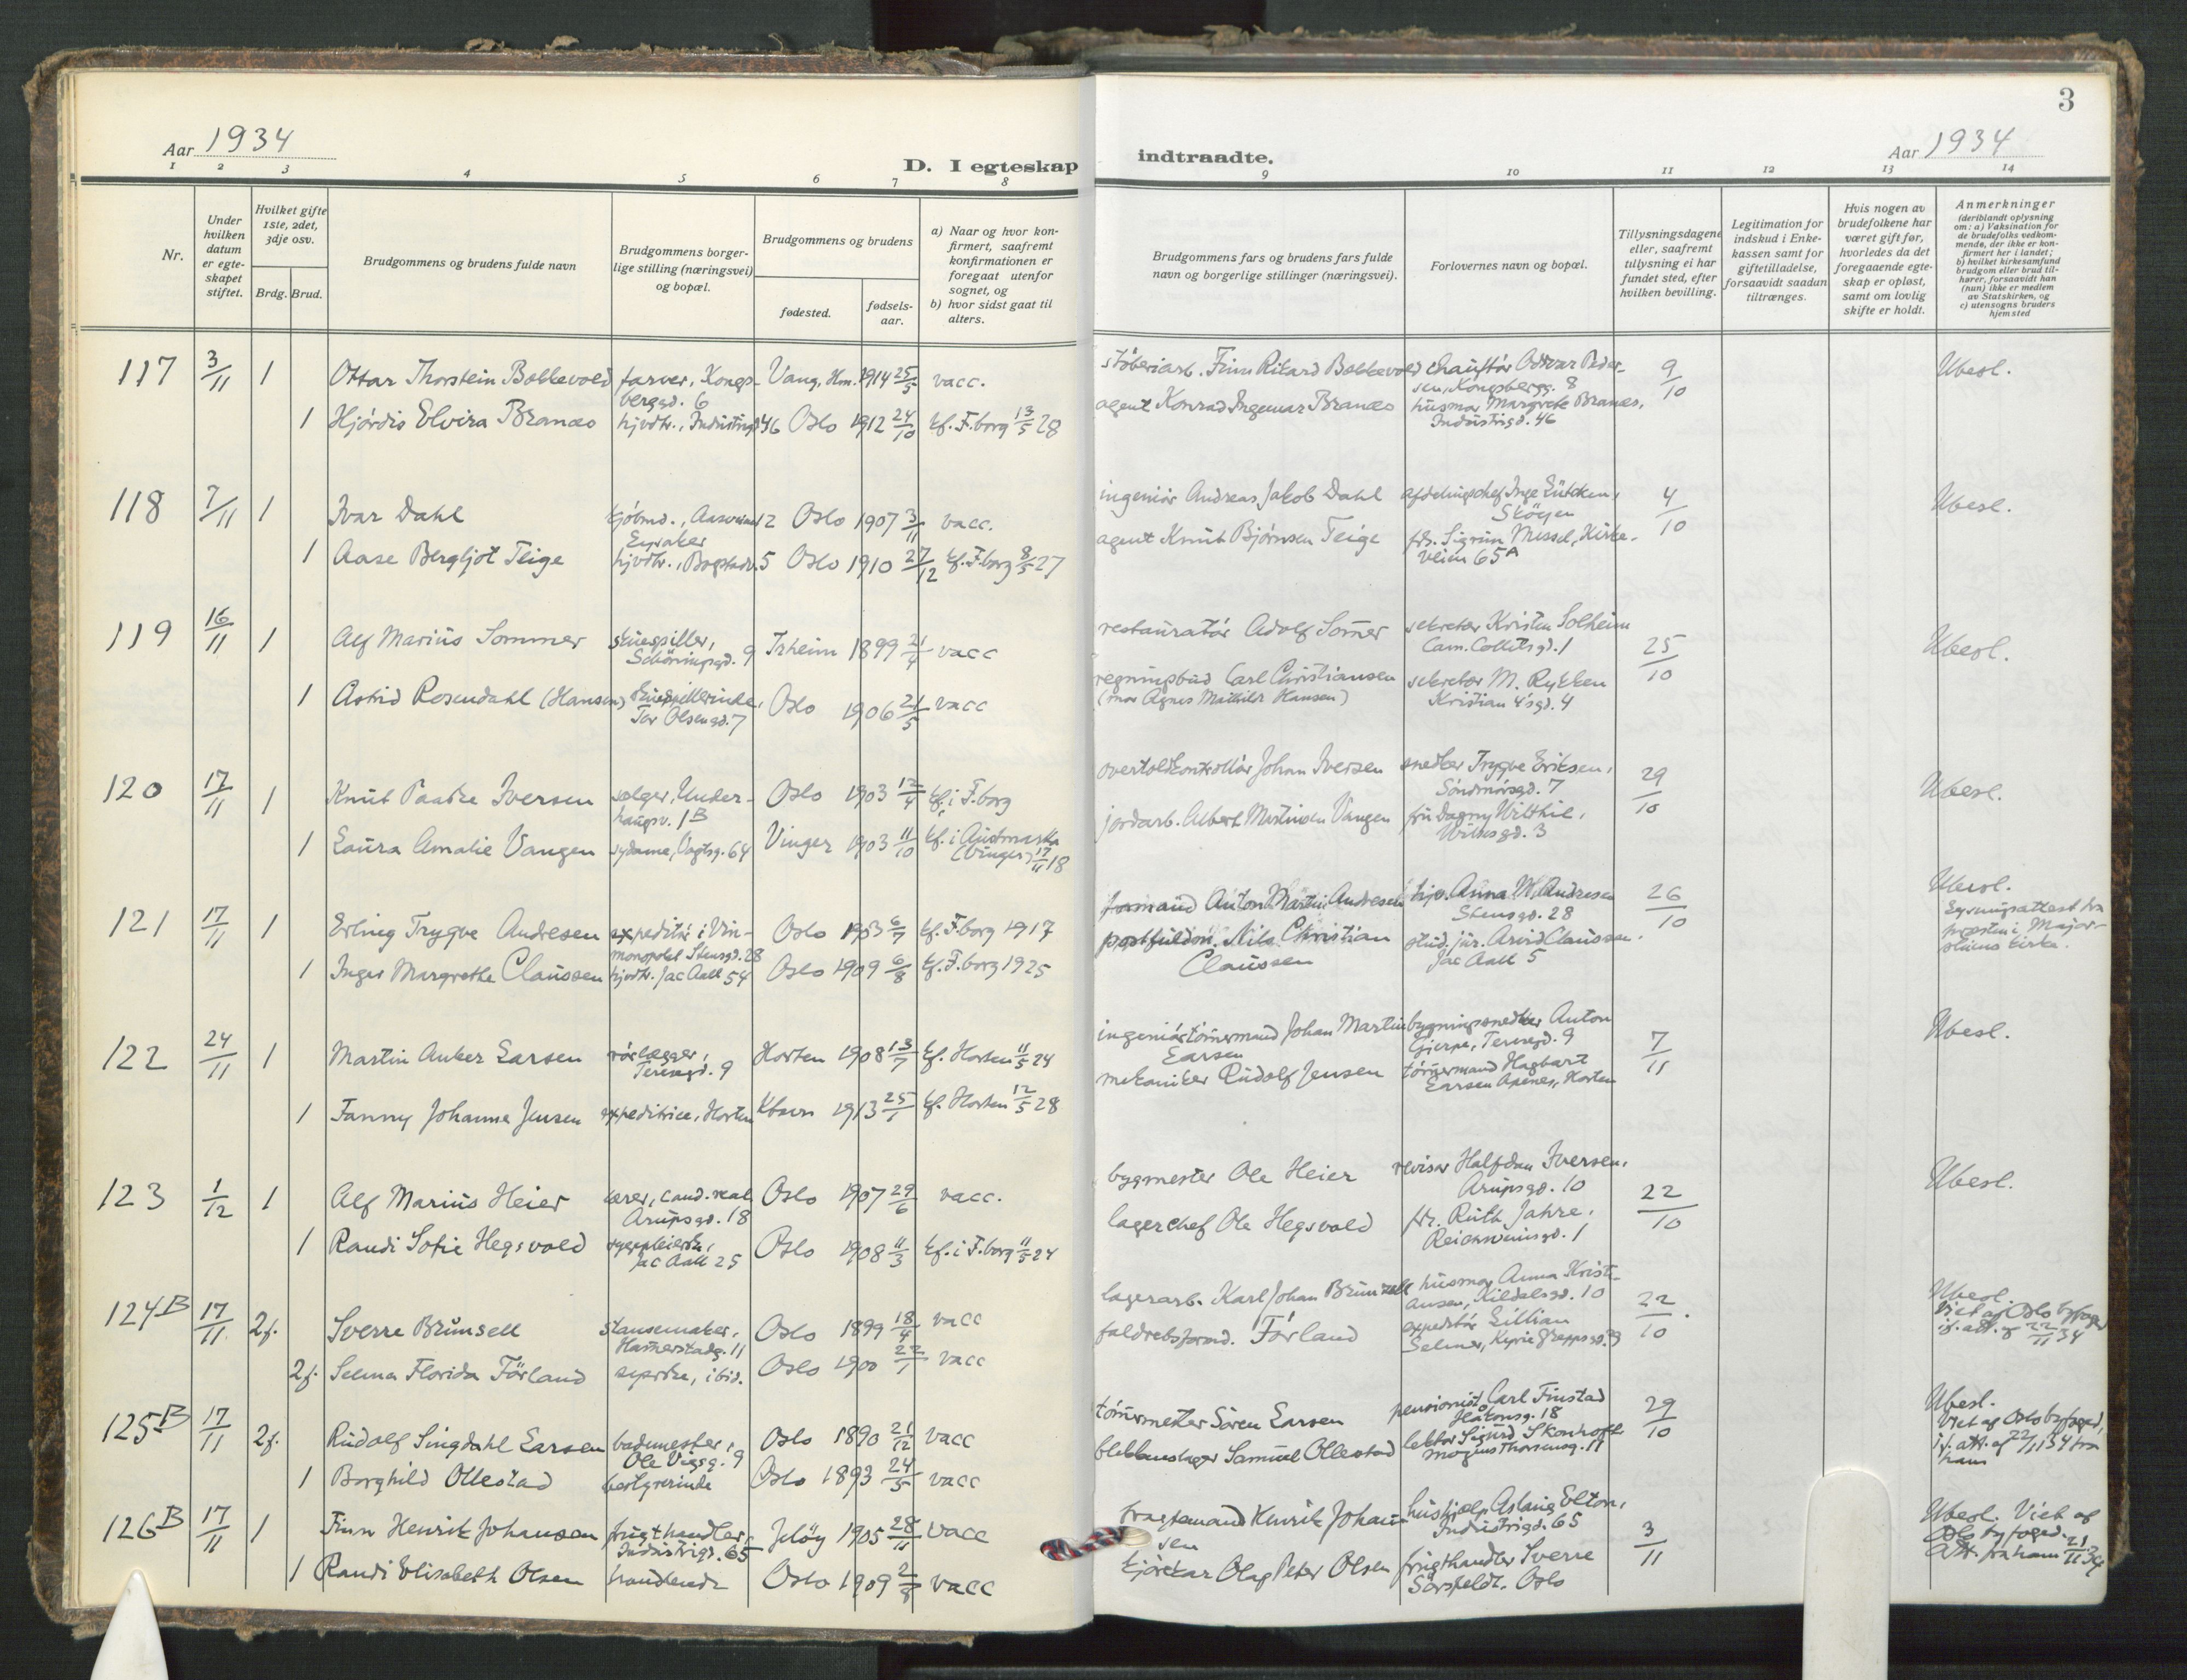 3
Aar 1934
D. I egteskap indtraadte.
Aar 1934
1 2 3 4 5 6 7 8 9 10 11 12 13 14
Nr.
Under hvilken datum er egteskapet stiftet.
Hvilket gifte 1ste, 2det, 3dje osv.
Brdg. Brud.
Brudgommens og brudens fulde navn
Brudgommens borgerlige stilling (næringsvei) og bopæl.
Brudgommens og brudens
fødested.
fødselsaar.
a) Naar og hvor konfirmert, saafremt konfirmationen er foregaat utenfor sognet, og
b) hvor sidst gaat til alters.
Brudgommens fars og brudens fars fulde navn og borgerlige stillinger (næringsvei).
Forlovernes navn og bopæl.
Tillysningsdagene eller, saafremt tillysning ei har fundet sted, efter hvilken bevilling.
Legitimation for indskud i Enkekassen samt for giftetilladelse, forsaavidt saadan tiltrænges.
Hvis nogen av brudefolkene har været gift før, hvorledes da det foregaaende egteskap er opløst, samt om lovlig skifte er holdt.
Anmerkninger
(deriblandt oplysning om: a) Vaksination for de brudefolks vedkommende, der ikke er konfirmert her i landet;
b) hvilket kirkesamfund brudgom eller brud tilhører, forsaavidt han (hun) ikke er medlem av Statskirken, og
c) utensogns bruders hjemsted
117 3/11 1 Ottar Thorstein Bakkevold farver, Kongsbergsgd. 6 Vang, Hm. 1914 25/5 vacc. støberiarb. Finn Rikard Bakkevold chauffør Oddvar Pedersen, Kongsbergg. 8 9/10 Ubesl.
1 Hjördis Elvira Branæs hjvdtr., Industrigd. 46 Oslo 1912 24/10 kf. F.borg 13/5 28 agent Konrad Ingemar Branæs husmor Margrete Branæs, Industrigd. 46
118 7/11 1 Ivar Dahl kjøbmd., 12 Oslo 1907 3/11 vacc. ingeniør Andreas Jakob Dahl afdelingschef Inge Lütcken, Skøyen 4/10 Ubesl.
1 Aase Bergljot Teige hjvdtr., Bogstadv. 5 Oslo 1910 27/12 kf. F.borg 8/5 27 agent Knut Bjørnsen Teige frk. Sigrun Messel, Kirkeveien 65A
119 16/11 1 Alf Marius Sommer skuespiller, Schöningsgd. 9 Trheim 1899 21/4 vacc restauratør Adolf Som̄er sekretær Kristen Solheim Cam. Collettsgd. 1 25/10 Ubesl.
1 Astrid Rosendahl (Hansen) skuespillerinde, Tor Olsensgd. 7 Oslo 1906 21/5 vacc regningsbud Carl Christiansen (mor Agnes Mathilde Hansen) sekretær M. Rykken Kristian 4's gd. 4
120 17/11 1 Knut Paaske Iversen sælger, Underhaugsv. 1B Oslo 1903 12/4 kf. i F.borg overtoldkontrollør Johan Iversen snedker Trygve Eriksen, Söndmörsgd. 7 29/10 Ubesl.
1 Laura Amalie Vangen sydame, Vogtsg. 64 Vinger 1903 11/10 kf. i Austmarka (Vinger) 17/11 18 jordarb. Albert Martinsen Vangen fru Dagny Wilthil, Wilsesgd. 3
121 17/11 1 Erling Trygve Andresen expeditør i Vinmonopolet Stensgd. 28 Oslo 1903 6/7 kf. F.borg 1917 formand Anton Martin Andresen hjv. Anna M. Andresen Stensgd. 28 26/10 Ubesl. Lysningsattest fra presten i Majorstuens kirke.
1 Inger Margrethe Claussen hjvdtr. Jac Aall 54 Oslo 1909 6/8 kf. F.borg 1925 postfuldm. Nils Christian Claussen stud. jur. Arvid Claussen. Jac Aall 5
122 24/11 1 Martin Anker Larsen rørlægger, Teresesgd. 9 Horten 1908 13/7 kf. Horten 11/5 24 tøm̄ermand Johan Martin Larsen bygningssnedker Anton Gjerpe, Teresesgd. 9 7/11 Ubesl.
1 Fanny Johanne Jensen expeditrice, Horten Kbavn 1913 25/1 kf. Horten 12/5 28 mekaniker Rudolf Jensen tøm̄ermand Hagbart Larsen Apenes, Horten
123 1/12 1 Alf Marius Heier lærer, cand. real Arupsgd. 18 Oslo 1907 29/6 vacc. bygmester Ole Heier revisor Halfdan Iversen, Arupsgd. 10 22/10 Ubesl.
1 Randi Sofie Hegsvold sygepleierske, Jac Aall 25 Oslo 1908 11/3 kf. i F.borg 11/5 24 lagerchef Ole Hegsvold fr. Ruth Jahre, Reichweinsgd. 1
124B 17/11 2f. Sverre Brunsell stansemaker, Ham̄erstadg. 11 Oslo 1899 18/4 vacc lagerarb. Karl Johan Brunsell husmor Anna Kristiansen, Kildalsgd. 10 22/10 Ubesl. Viet af Oslo byfoged if. att. af 22/11 34
2f. Selma Florida Förland syerske, ibid. Oslo 1900 22/1 vacc Förland expeditør Lillian Selmer, Kyrre Greppsgd. 9
125B 17/11 2f. Rudolf Singdahl Larsen bademester, Ole Vigsg. 9 Oslo 1890 21/12 vacc tøm̄ermester Sören Larsen pensionist Carl Finstad Haakonsg. 18 29/10 Ubesl. Viet af Oslo byfoged, if. att. af 22/11 34 fra ham
1 Borghild Ollestad bestyrerinde Oslo 1893 24/5 vacc blikkenslager Samuel Ollestad lektor Sigurd Skonhoft Mogens Thorsensg. 11
126B 17/11 1 Finn Henrik Johansen frugthandler, Industrigd. 65 Jeløy 1905 28/11 vacc fragtemand Henrik Johansen hushjelp Aslaug Elton, Industrigd. 65 3/11 Ubesl. Viet af Oslo byfoged. Att. fra ham 21/11 34
1 Randi Elisabeth Olsen handlende Oslo 1909 vacc kjørekar Olaf Peter Olsen frugthandler Sverre Sörsfeldt. Oslo